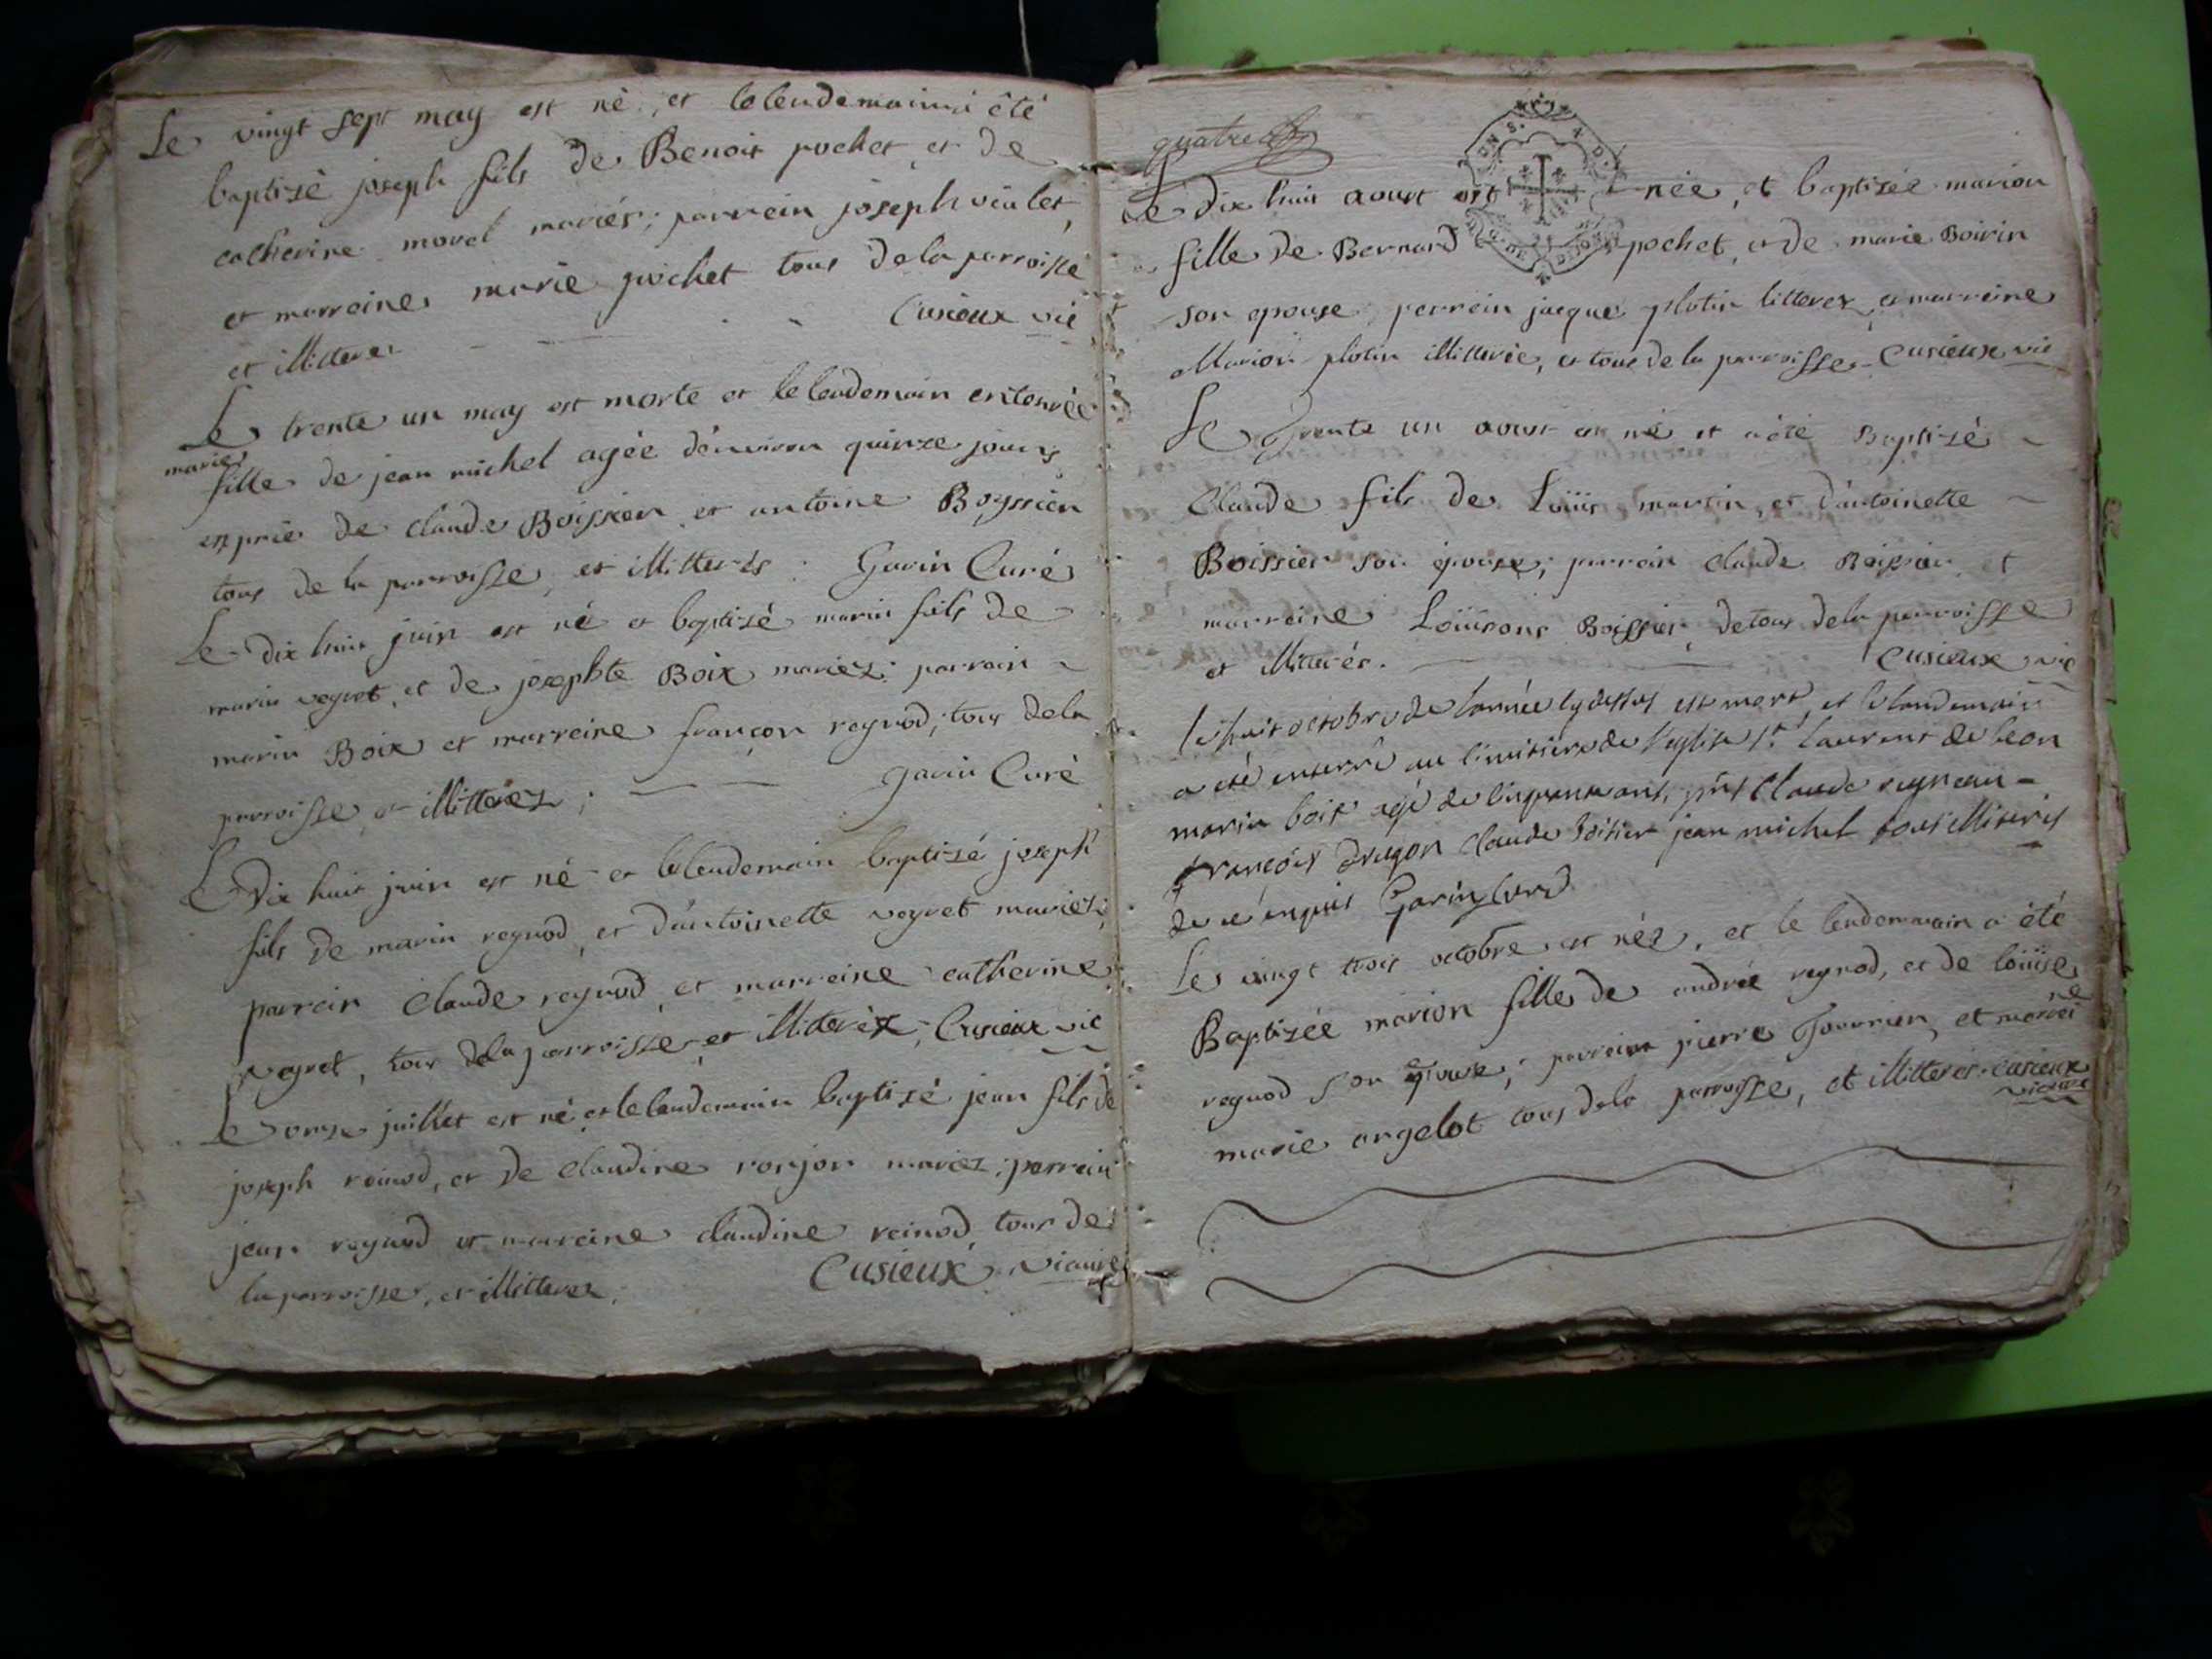 Le vingt sept may est né, et le lendemain a été
baptisé joseph fils de Benoit pochet et de
catherine morel mariés; parrein joseph violet,
et marreine marie pochet tous de la parroisse
et illitteres Cusieux vic
Le trente un may est morte et le lendemain enterrée
marie
fille de jean michel agée d'environ quinze jours
en pris de claude Boissier et antoine Boyssier
tous de la parroisse, et illitterés. Garin Curé
Le dix huit juin est né et baptisé marin fils de
marin vegret, et de josephte Boix mariez: parrain
marin Boix et marreine françon regnod, tous de la
parroisse, et illitterez; garin Curé
Le Dix huit juin est né et le lendemain baptisé joseph
fils de marin regnod, et d'antoinette vegret mariez;
parrein claude regnod et marreine catherine
vegret, tous de la parroisse et illitteréz; Cusieux vic
Le onze juillet est né, et le lendemain baptisé jean fils de
joseph reinod, et de claudine ronjon mariez; parrein
jean regnod et marreine claudine reinod tous de
la parroisse, et illitterez; Cusieux vicaire
quatre
Le dix huit aoust est née, et baptisée marion
fille de Bernard pochet, et de marie Boirin
son epouse, parrein jacque plotin litterez, et marreine
Marion plotin illitterée, et tous de la parroisse. Cusieux vic
Le trente un aoust est né et a été Baptisé
Claude fils de Loüis martin, et d'antoinette
Boissier son épouse; parrein claude Boissier et
marreine Loüisons Boissier, de tous de la parroisse
et illitterés. Cusieux vic
le huit octobre de l'année cy dessus est mort, et le landemain
a été enterré au cimitiere de l'eglise st laurent de
marin boix agé de cinquante ans, pnt Claude regneau
françois dragon claude boisier jean michel tous illiteris
de ce enquis Garin Curé
Le vingt trois octobre est née, et le lendemain a été
Baptizée marion fille de andrée regnod, et de loüise
regnod son epouse; parrein pierre Fournier, et marrei
ne
marie angelot tous de la parroisse, et illitterés. cusieux
vicaire